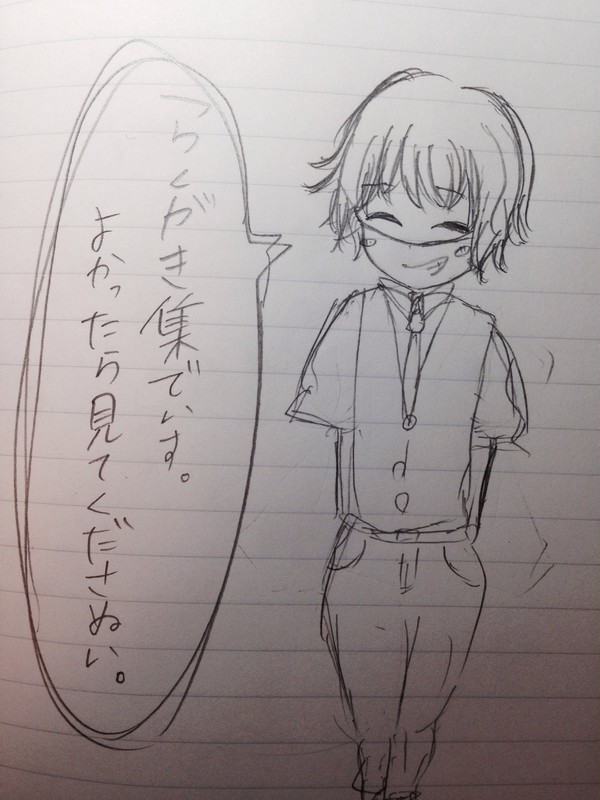 らくがき集でいす。
よかったら見てくださぬい。